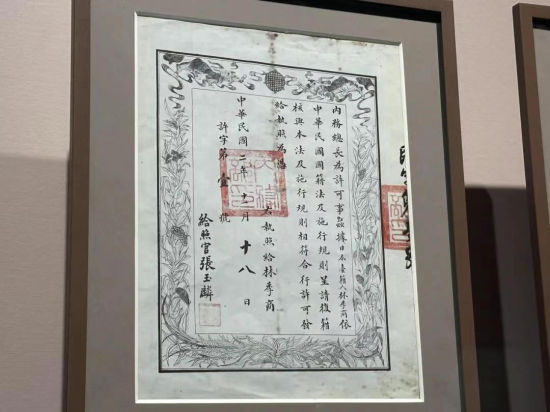 內務總長為許可事茲據日本臺籍人林季商依
中華民國國籍法及施行規則呈請復籍
核與本法及施行規則相符合行許可發
給執照為憑
右執照給林季商
中華民國二年 月十八日
許字第壹號
給照官張玉麟